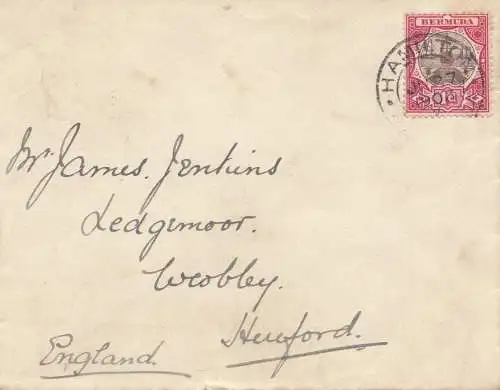 BERMUDA
HAMILTON
Mr. James Jenkins
Ledgemoor.
Weobley.
Hereford.
England.